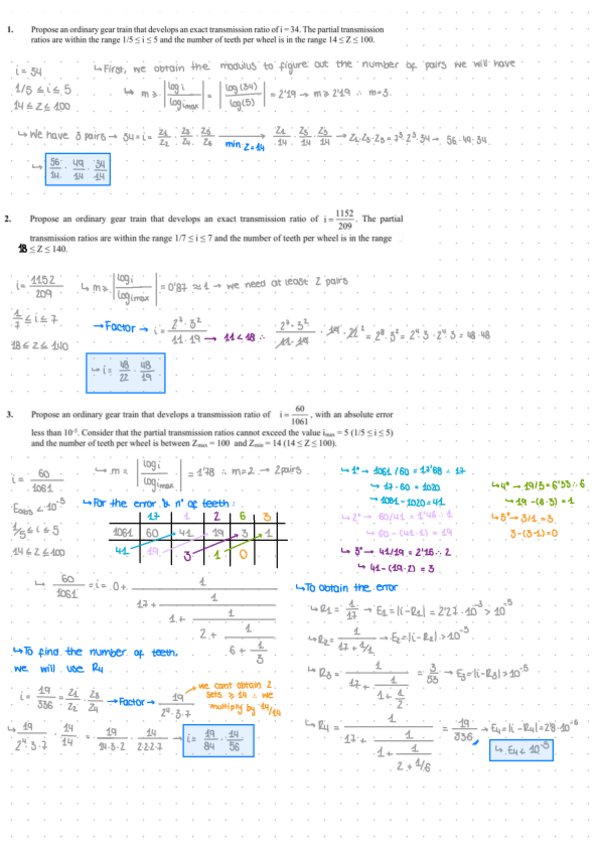 1. Propose an ordinary gear train that develops an exact transmission ratio of i = 34. The partial transmission
ratios are within the range 1/5 ≤ i ≤ 5 and the number of teeth per wheel is in the range 14 ≤ Z ≤ 100.
i = 34
1/5 ≤ i ≤ 5
14 ≤ z ≤ 100
↳ First, we obtain the modulus to figure out the number of pairs we will have
↳ m ≥ |log i / log imax| = |log(34) / log(5)| = 2'19 → m ≥ 2'19 ∴ m=3.
↳ We have 3 pairs → 34 = i = Z1/Z2 · Z3/Z4 · Z5/Z6 → min Z=14 Z1/14 · Z3/14 · Z5/14 → Z1·Z3·Z5 = 7³·2³·34 → 56·49·34
↳ 56/14 · 49/14 · 34/14
2. Propose an ordinary gear train that develops an exact transmission ratio of i = 1152/209. The partial
transmission ratios are within the range 1/7 ≤ i ≤ 7 and the number of teeth per wheel is in the range
18 ≤ Z ≤ 140.
i = 1152/209
1/7 ≤ i ≤ 7
18 ≤ z ≤ 140
↳ m ≥ |log i / log imax| = 0'87 ≈ 1 → we need at least 2 pairs
→ Factor → i = 2⁷·3²/11·19 → 11 < 18 ∴ 2⁷·3²/11·19 · 19·21² = 2⁸·3² = 2⁴·3·2⁴·3 = 48·48
↳ i = 48/22 · 48/19
3. Propose an ordinary gear train that develops a transmission ratio of i = 60/1061, with an absolute error
less than 10⁻⁵. Consider that the partial transmission ratios cannot exceed the value imax = 5 (1/5 ≤ i ≤ 5)
and the number of teeth per wheel is between Zmax = 100 and Zmin = 14 (14 ≤ Z ≤ 100).
i = 60/1061
Eabs < 10⁻⁵
1/5 ≤ i ≤ 5
14 ≤ z ≤ 100
↳ m = |log i / log imax| = 1'78 ∴ m=2 → 2 pairs.
↳ For the error & nº of teeth:
17 1 2 6 3
1061 60 41 19 3 1
41 19 3 1 0
↳ 1º → 1061/60 = 17'68 ∴ 17
↳ 17·60 = 1020
↳ 1061 - 1020 = 41
↳ 2º → 60/41 = 1'46 ∴ 1
↳ 60 - (41·1) = 19
↳ 3º → 41/19 = 2'16 ∴ 2
↳ 41 - (19·2) = 3
↳ 4º → 19/3 = 6'33 ∴ 6
↳ 19 - (6·3) = 1
↳ 5º → 3/1 = 3
3 - (3·1) = 0
↳ 60/1061 = i = 0 + 1/17 + 1/1 + 1/2 + 1/6 + 1/3
↳ To find the number of teeth,
we will use R4
i = 19/336 = Z1/Z2 · Z3/Z4 → Factor → 19/2⁴·3·7
→ we cant obtain 2
sets ≥ 14 ∴ we
multiply by 14/14
↳ 19/2⁴·3·7 · 14/14 = 19/14·3·2 · 14/2·2·2·7 → i = 19/84 · 14/56
↳ To obtain the error
↳ R1 = 1/17 → E1 = |i - R1| = 2'27·10⁻³ > 10⁻⁵
↳ R2 = 1/17 + 1/1 → E2 = |i - R2| > 10⁻⁵
↳ R3 = 1/17 + 1/1 + 1/2 = 3/53 → E3 = |i - R3| > 10⁻⁵
↳ R4 = 1/17 + 1/1 + 1/2 + 1/6 = 19/336 → E4 = |i - R4| = 2'8·10⁻⁶
↳ E4 < 10⁻⁵